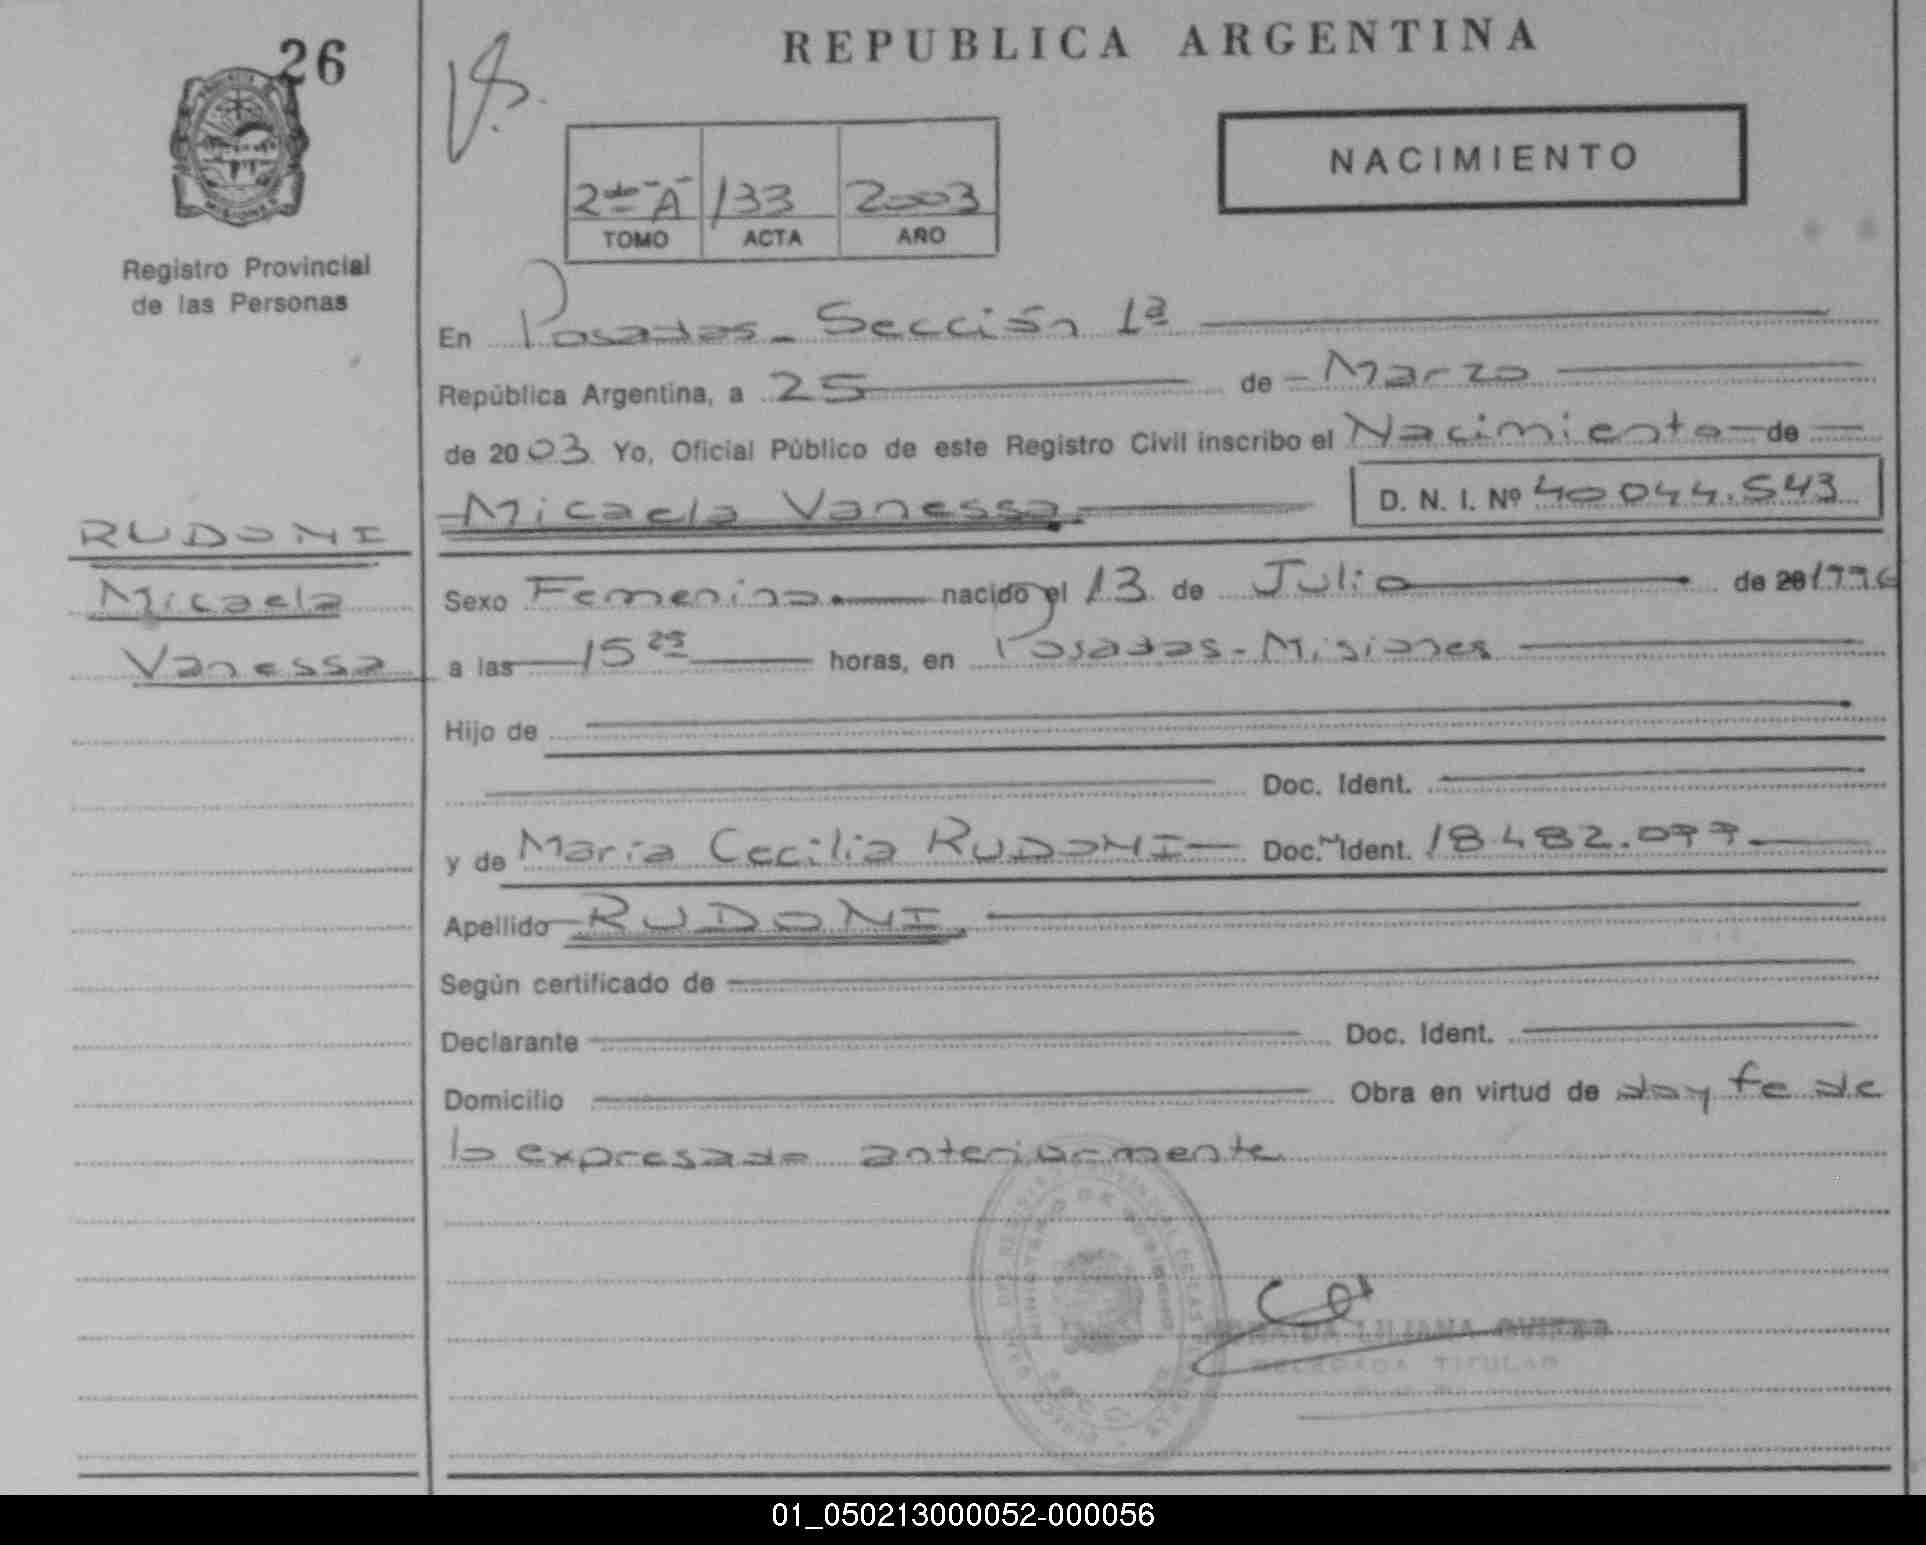 26
REPUBLICA ARGENTINA
NACIMIENTO
2do "A" 133 2003
TOMO ACTA AÑO
Registro Provincial
de las Personas
En Posadas - Sección 1ª
República Argentina, a 25 de Marzo
de 2003 Yo, Oficial Público de este Registro Civil inscribo el Nacimiento de
Micaela Vanessa D. N. I. Nº 40 044.543
RUDONI
Micaela
Vanessa
Sexo Femenino nacido el 13 de Julio de 20 1996
a las 15 29 horas, en Posadas - Misiones
Hijo de
Doc. Ident.
y de María Cecilia RUDONI Doc. Ident. 18.482.077
Apellido RUDONI
Según certificado de
Declarante Doc. Ident.
Domicilio Obra en virtud de doy fe de
lo expresado anteriormente
LILIANA
DELEGADA TITULAR
01_050213000052-000056